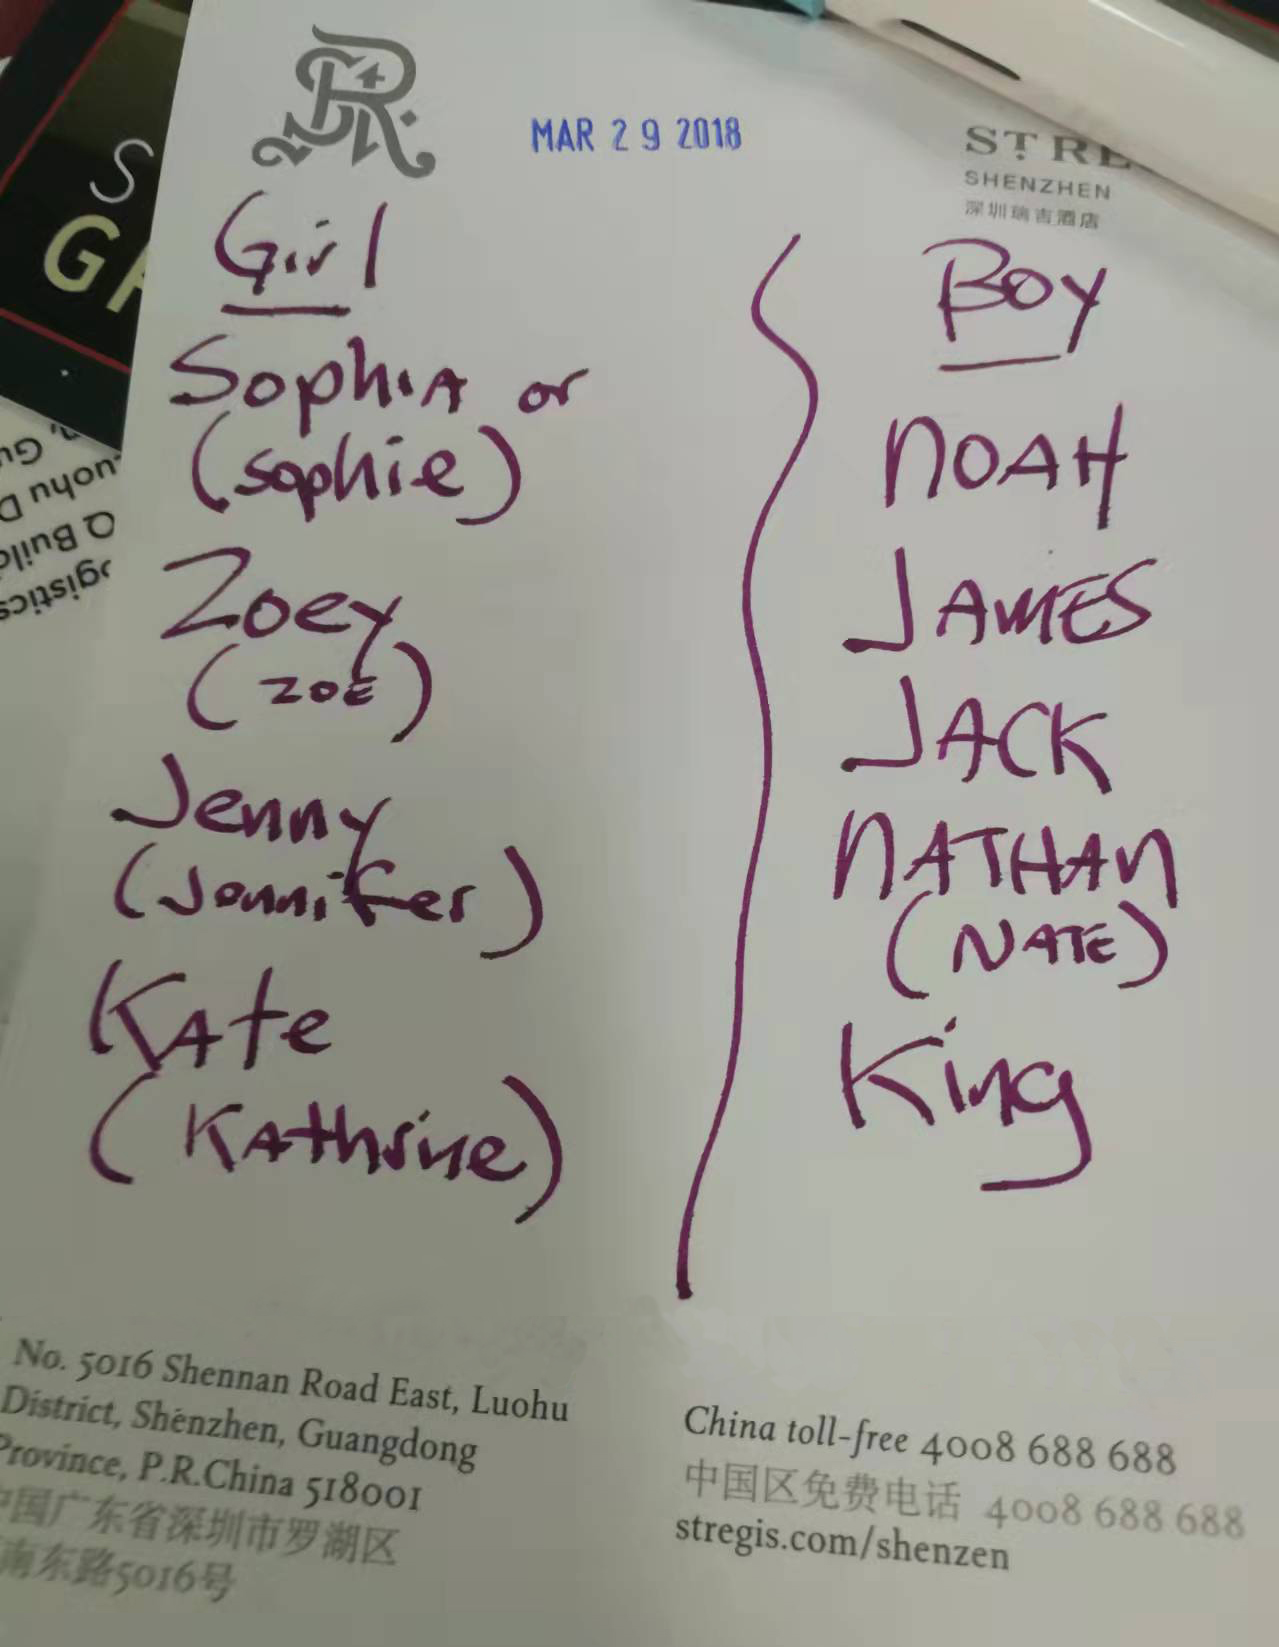 MAR 29 2018
ST RE
SHENZHEN
深圳瑞吉酒店
Girl
Sophia or
(Sophie)
Zoey
(ZOE)
Jenny
(Jennifer)
Kate
(Kathrine)
Boy
NOAH
JAMES
JACK
NATHAN
(NATE)
King
No. 5016 Shennan Road East, Luohu
District, Shenzhen, Guangdong
Province, P.R.China 518001
中国广东省深圳市罗湖区
南东路5016号
China toll-free 4008 688 688
中国区免费电话 4008 688 688
stregis.com/shenzen